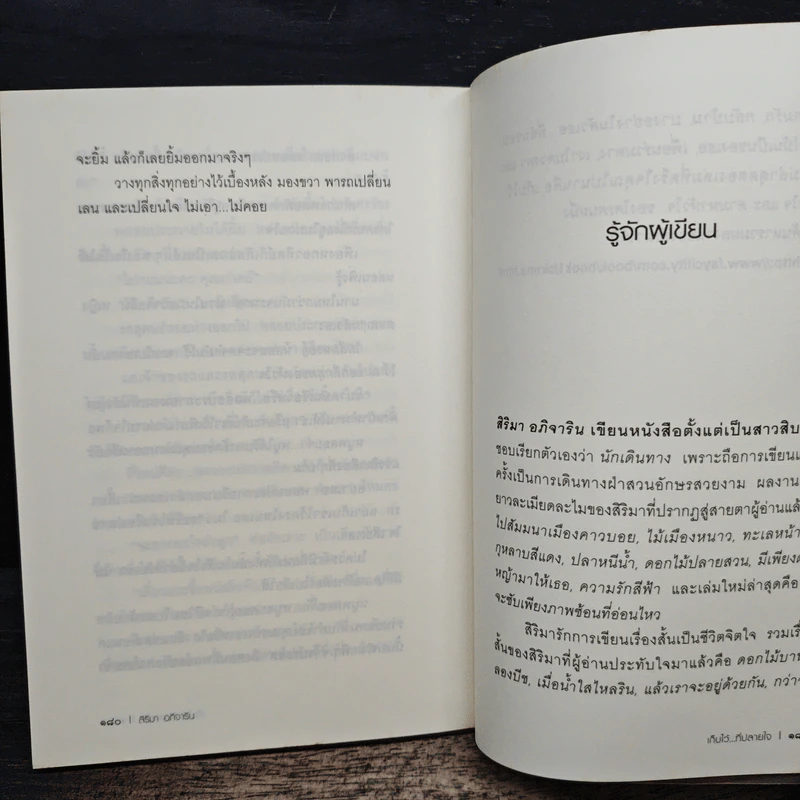 จะยิ้ม แล้วก็เลยยิ้มออกมาจริงๆ
วางทุกสิ่งทุกอย่างไว้เบื้องหลัง มองขวา พารถเปลี่ยน
เลน และเปลี่ยนใจ ไม่เอา...ไม่คอย
๑๘๐ | สิริมา อภิจาริน
รู้จักผู้เขียน
สิริมา อภิจาริน เขียนหนังสือตั้งแต่เป็นสาวสิบ
ชอบเรียกตัวเองว่า นักเดินทาง เพราะถือการเขียน
ครั้งเป็นการเดินทางฝ่าสวนอักษรสวยงาม ผลงาน
ยาวละเมียดละไมของสิริมาที่ปรากฏสู่สายตาผู้อ่านแล้
ไปสัมมนาเมืองคาวบอย, ไม้เมืองหนาว, ทะเลหน้า
กุหลาบสีแดง, ปลาหนีน้ำ, ดอกไม้ปลายสวน, มีเพียง
หญ้ามาให้เธอ, ความรักสีฟ้า และเล่มใหม่ล่าสุดคือ
จะซับเพียงภาพซ้อนที่อ่อนไหว
สิริมารักการเขียนเรื่องสั้นเป็นชีวิตจิตใจ รวมเรื่
สั้นของสิริมาที่ผู้อ่านประทับใจมาแล้วคือ ดอกไม้บาน
ลองบีช, เมื่อน้ำใสไหลริน, แล้วเราจะอยู่ด้วยกัน, กว่า
เก็บไว้...ที่ปลายใจ | ๑๘